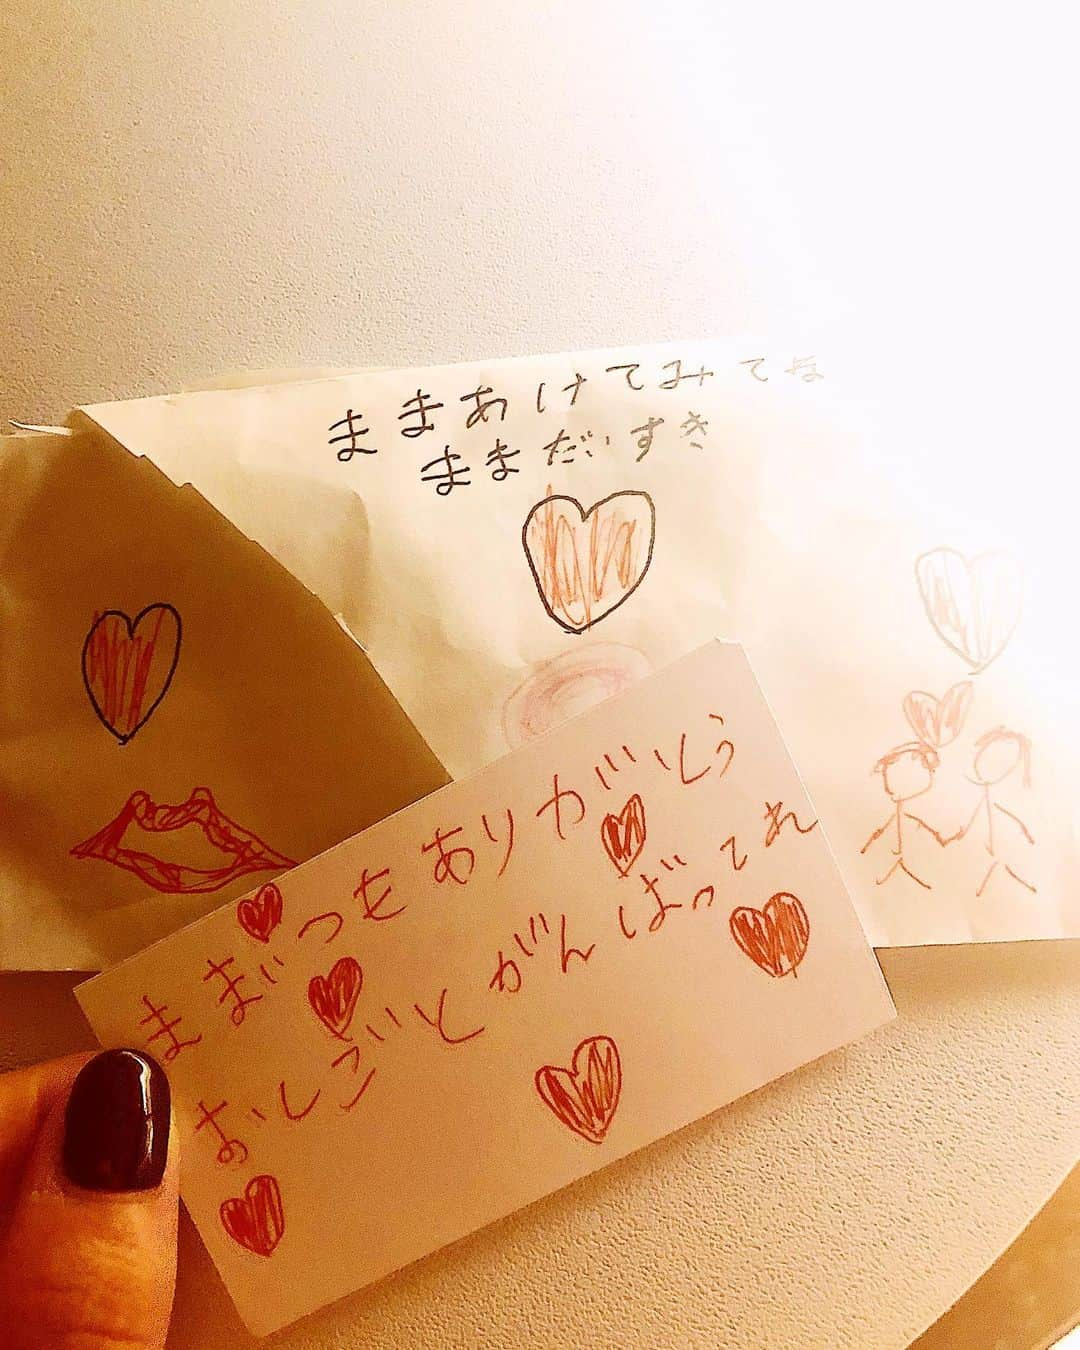 ままあけてみてね
ままだいすき
ままいつもありがとう
おしごとがんばってね